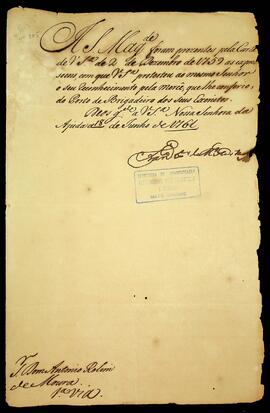 A S. Mag.de foram prezentes pela Carta
de V.S.a de 2 de Dezembro de 1759 as expre-
sçoens com que V.S.a protestou ao mesmo Senhor
o seu reconhecimento pela Mercê, que lhe conferio,
do Posto de Brigadeiro dos seus Exercitos.
Deos g.de a V.S.a Nossa Senhora da
Ajuda a 18 de Junho de 1761
S.r Dom Antonio Rolim
de Moura
1.a Via